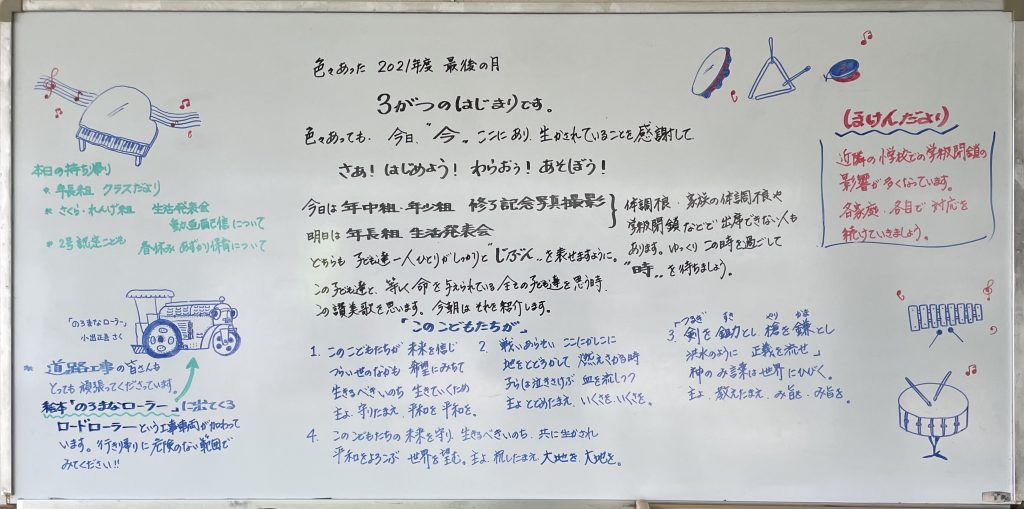 色々あった 2021年度 最後の月
3がつのはじまりです。
色々あっても、今日、"今"ここにあり、生かされていることを感謝して
さぁ！はじめよう！わらおう！あそぼう！
今日は 年中組・年少組 修了記念写真撮影
明日は 年長組 生活発表会
体調不良・家族の体調不良や
学級閉鎖などで出席できない人も
あります。ゆっくりこの時を過ごして
"時"を待ちましょう。
どちらも子ども達一人ひとりがしっかりと"じぶん"を表せますように。
この子ども達と、等しく命を与えられている全ての子ども達を思う時、
この讃美歌を思います。今朝はそれを紹介します。
「このこどもたちが」
1. このこどもたちが 未来を信じ
つらい世のなかも 希望にみちて
生きるべきいのち 生きていくため
主よ、守りたまえ、平和を平和を。
2. 戦いあらそい ここにかしこに
地をとどろかして 燃えさかる時
子らは泣きさけぶ 血を流しつつ
主よ とどめたまえ、いくさをいくさを。
3. 「剣を鋤とし 槍を鎌とし
つるぎ すき やり かま
洪水のように 正義を流せ」
神のみ言葉は世界にひびく。
主よ、教えたまえ、み旨を・み旨を。
4. このこどもたちの 未来を守り、生きるべきいのち、共に生かされ
平和をよろこぶ 世界を望む。主よ、祝したまえ、大地を、大地を。
本日の持ち帰り
* 年長組 クラスだより
* さくら・れんげ組 生活発表会
動画配信について
* 2号認定こども 春休みあずかり保育について
「のろまなローラー」
小出正吾 さく
* 道路工事の皆さんも
とっても 頑張ってくださっています。
絵本「のろまなローラー」に出てくる
ロードローラーという工事車両が加わって
います。行き帰りに危険のない範囲で
みてください!!
ほけんだより
近隣の小学校での学級閉鎖の
影響が多くなっています。
各家庭・各自で対応を
続けていきましょう。